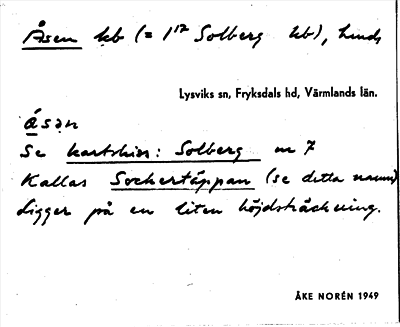 Åsen kb (= 1¹² Solberg kb), hmds
Lysviks sn, Fryksdals hd, Värmlands län.
åsən
Se kartskiss: Solberg nr 7
Kallas Sockertäppan (se detta namn)
Ligger på en liten höjdsträckning.
ÅKE NORÉN 1949